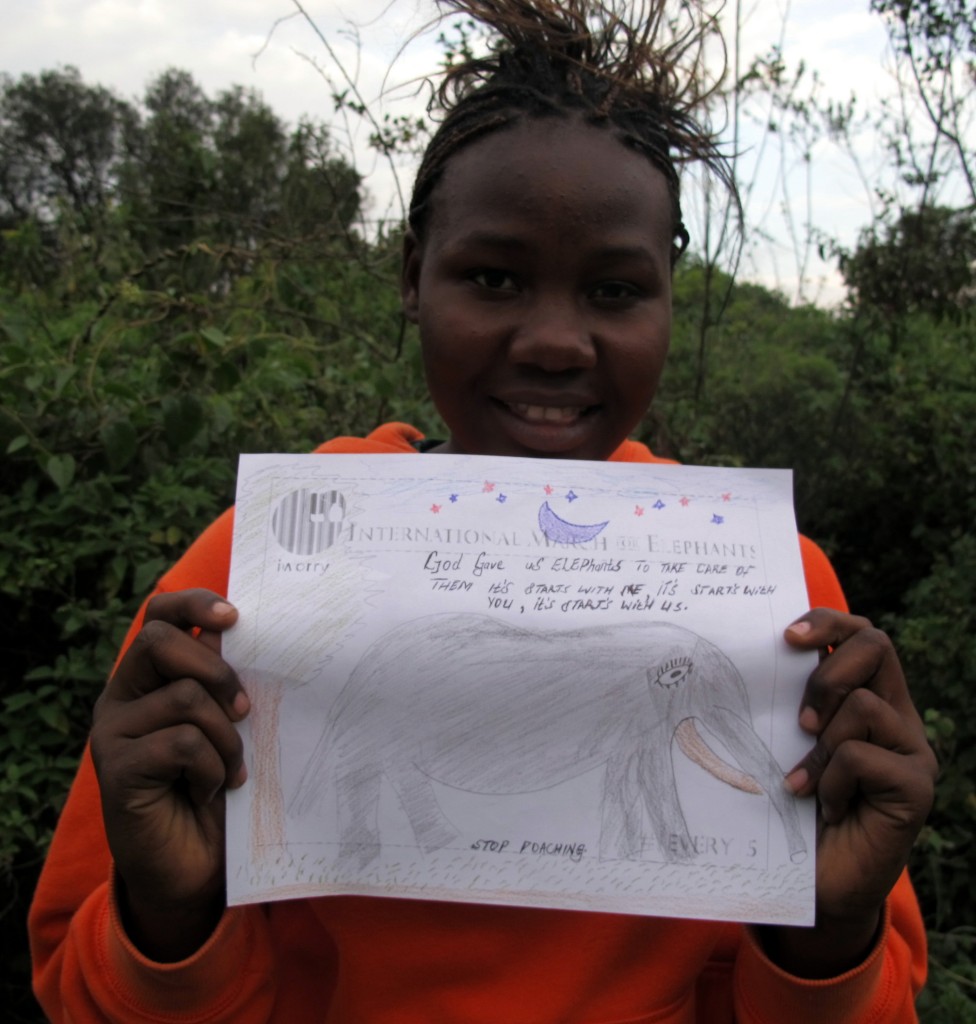 INTERNATIONAL MARCH FOR ELEPHANTS
iworry
God Gave us ELEPhants TO TAKE CARE OF
THEM it's STARTS WITH ME, IT'S STARTS WITH
YOU, it's STARTS WITH US.
STOP POACHING
# EVERY 15